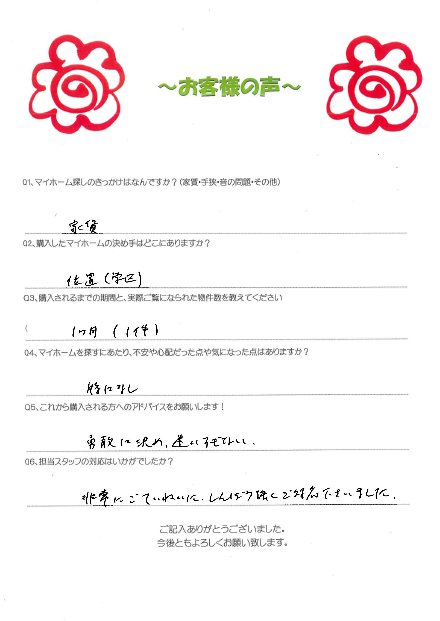 ～お客様の声～
Q1、マイホーム探しのきっかけはなんですか？（家賃・手狭・音の問題・その他）
家賃
Q2、購入したマイホームの決め手はどこにありますか？
位置（学区）
Q3、購入されるまでの期間と、実際ご覧になられた物件数を教えてください
1ヶ月（1件）
Q4、マイホームを探すにあたり、不安や心配だった点や気になった点はありますか？
特になし
Q5、これから購入される方へのアドバイスをお願いします！
勇敢に決め、迷い
Q6、担当スタッフの対応はいかがでしたか？
非常にごていねいに、しんぼう強くご対応下さいました。
ご記入ありがとうございました。
今後ともよろしくお願い致します。